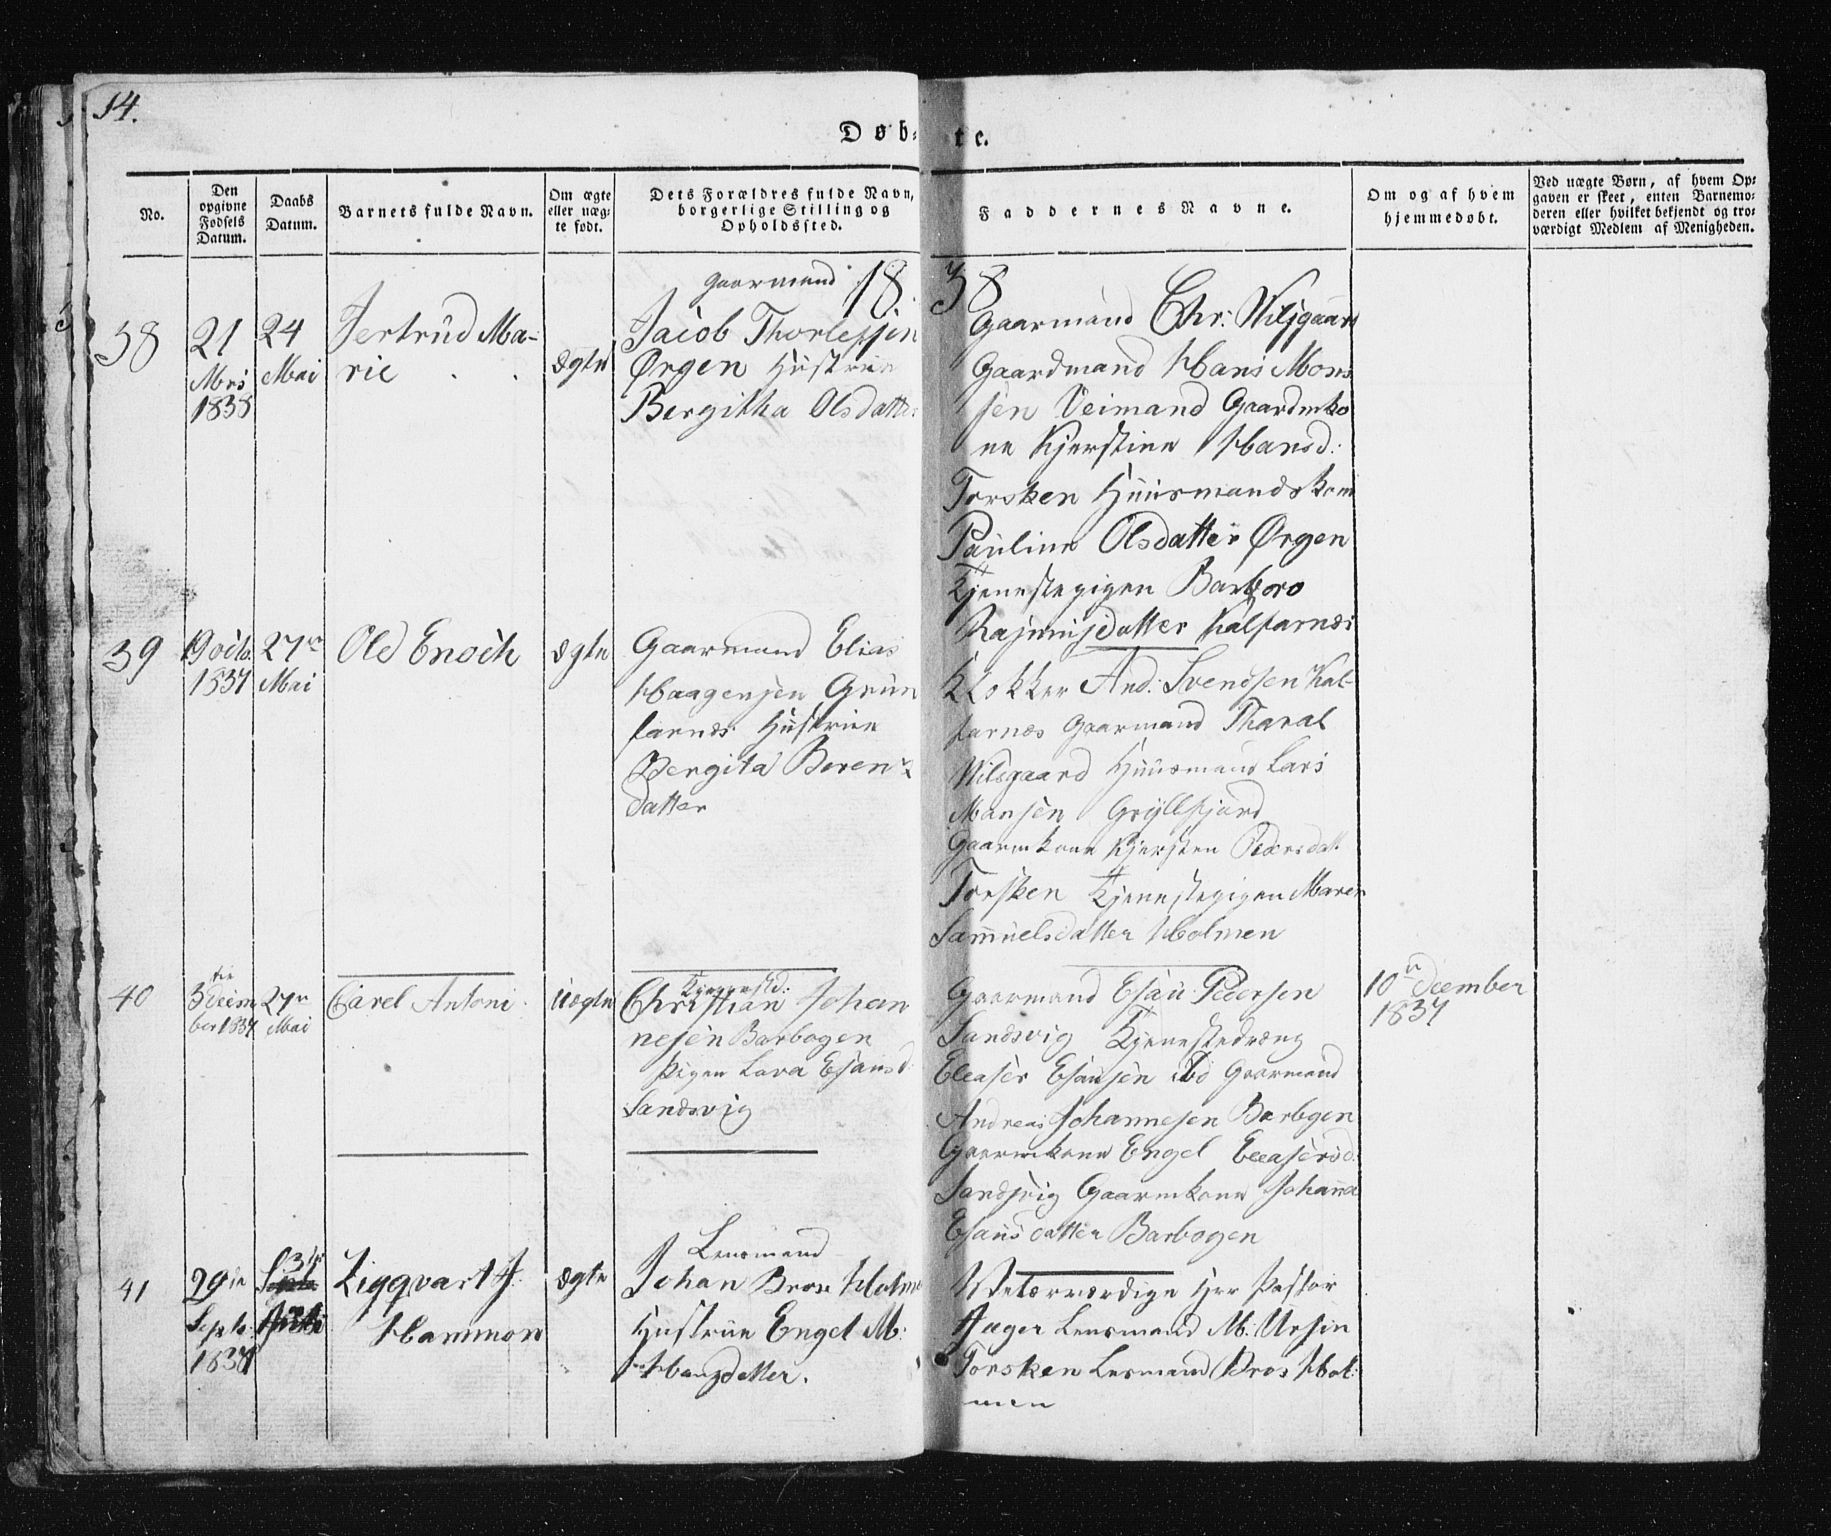 14.
Døb-te.
No.
Den opgivne Fødsels Datum.
Daabs Datum.
Barnets fulde Navn.
Om ægte eller uæg-te født.
Dets Forældres fulde Navn, borgerlige Stilling og Opholdssted.
Faddernes Navne.
Om og af hvem hjemmedøbt.
Ved uægte Børn, af hvem Op-gaven er skeet, enten Barnemo-deren eller hvilket bekjendt og tro-værdigt Medlem af Menigheden.
18. 38
38
21
Mai
1838
24
Mai
Jertrud Ma-
rie
ægte
Gaarmand
Jacob Thorlessen
Ørgen Hustrue
Bergitha Olsdatter
Gaarmand Chr: Nilsgaard
Gaardmand Hans Mons
sen Veimand Gaardmko
ne Kjerstine Hansd:
Torsken Huusmandskone
Pauline Olsdatter Ørgen
Tjenestepigen Barbro
Kalfarnæs
39
19 octo.
1837
27de
Mai
Ole Enoch
ægte
Gaarmand Elias
Haagensen Grun
farnæs Hustrue
Bergita Beren
datter
Klokker And: Svendsen Kal-
farnæs Gaarmand Tharal
Nilsgaard Huusmand Lars
Mansen Gryllefjord
Gaarmkone Kjersten Pedersdat
Torsken Tjenestepigen Maren
Samuelsdatter Holmen
40
3 decem
ber 1837
27de
Mai
Carel Antoni
uægte
Christian Johan
nesen Barbogen
Pigen Lava Esausd
Sandsvig
Gaarmand Esau Pedersen
Sandsvig Tjenestedræng
Eleaser Esausen ibd Gaarmand
Andreas Johannesen Barbgen
Gaarmkone Engel Eleasersd:
Sandsvig Gaarmkone Johanna
Esausdatter Barbogen
10de December
1837
41
29de
Septb:
1838
Ziggvart J.
Hammon
ægte
Lensmand
Johan Bros Holm
Hustrue Engel M:
Hansdatter.
Velærværdige Her Pastor
Jæger Lensmand M: Ursin
Torsken Lensmand Bros Hol:
men